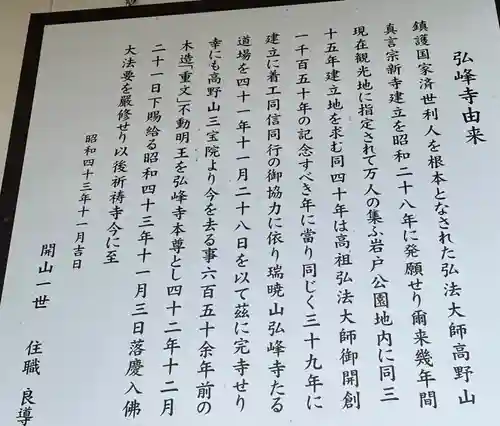 弘峰寺由来
鎮護国家済世利人を根本となされた弘法大師高野山
真言宗新寺建立を昭和二十八年に発願せり爾来幾年間
現在観光地に指定されて万人の集ふ岩戸公園地内に同三
十五年建立地を求む同四十年は高祖弘法大師御開創
一千百五十年の記念すべき年に当り同じく三十九年に
建立に着工同信同行の御協力に依り瑞暁山弘峰寺たる
道場を四十一年十一月二十八日を以て茲に完寺せり
幸にも高野山三宝院より今を去る事六百五十余年前の
木造「重文」不動明王を弘峰寺本尊とし四十二年十二月
二十一日下賜給る昭和四十三年十一月三日落慶入佛
大法要を厳修せり以後祈祷寺今に至
昭和四十三年十一月吉日
開山一世 住職 良導